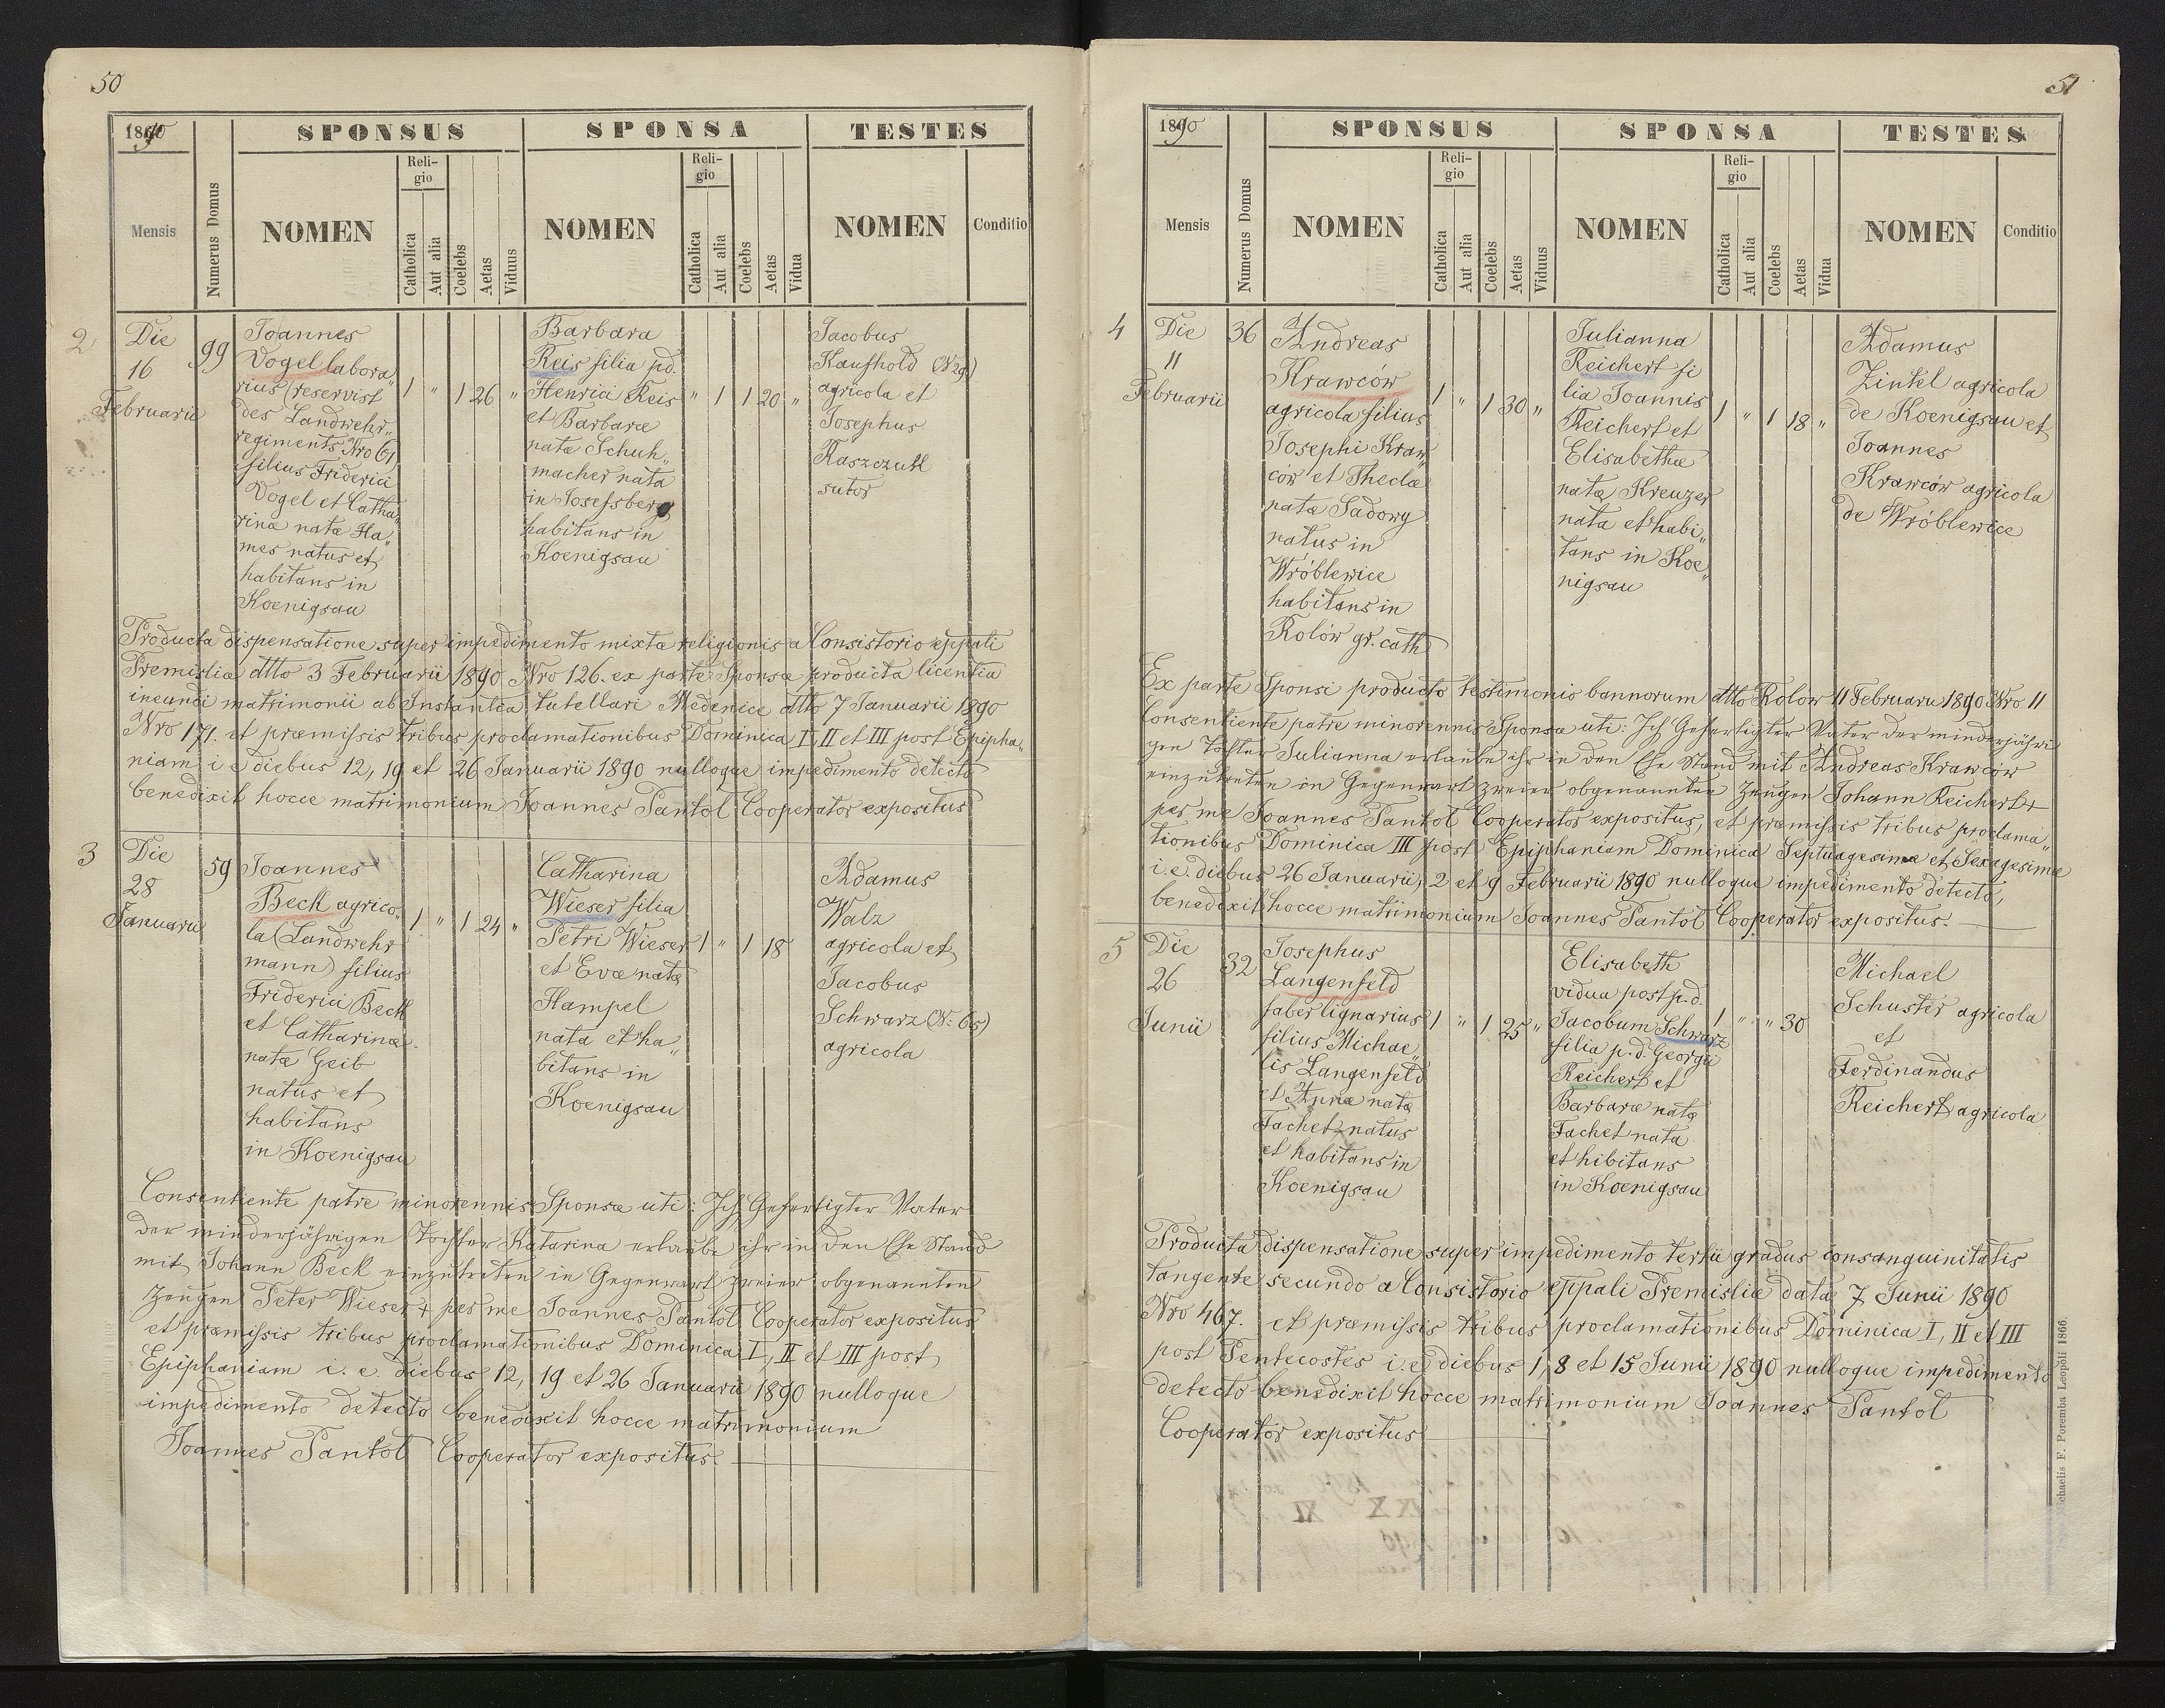 50
1890
SPONSUS
SPONSA
TESTES
Mensis
Numerus Domus
NOMEN
Reli-
gio
Catholica
Aut alia
Coelebs
Aetas
Viduus
NOMEN
Reli-
gio
Catholica
Aut alia
Coelebs
Aetas
Vidua
NOMEN
Conditio
2
Die
16
Februarii
99
Joannes
Vogel labora„
rius (reservist
des Landwehr„
regiments Nro 61
filius Friderici
Vogel et Catha„
rinæ natæ Ha„
mes natus et
habitans in
Koenigsau
1 „ 1 26 „
Barbara
Reis filia pd.
Henrici Reis
et Barbaræ
natæ Schuh„
macher nata
in Josefsberg
habitans in
Koenigsau
„ 1 1 20 „
Jacobus
Kaufhold (N 29)
agricola et
Josephus
Raszczuk
sutor
Producta dispensatione super impedimento mixtæ religionis a Consistorio eppali
Premisliæ dtto 3 Februarii 1890 Nro 126. ex parte Sponsæ producta licentia
ineundi matrimonii ab Instantia tutellari Medenice dtto 7 Januarii 1890
Nro 171. et præmissis tribus proclamationibus Dominica I, II et III post Epipha„
niam i e diebus 12, 19 et 26 Januarii 1890 nulloque impedimento detecto
benedixit hocce matrimonium Joannes Pantoł Cooperator expositus
3
Die
28
Januarii
59
Joannes
Beck agrico„
la (Landwehr
mann) filius
Friderici Beck
et Catharinæ
natæ Geib
natus et
habitans
in Koenigsau
1 „ 1 24 „
Catharina
Wieser filia
Petri Wieser
et Evæ natæ
Hampel
nata et ha„
bitans in
Koenigsau
1 „ 1 18
Adamus
Walz
agricola et
Jacobus
Schwarz (N: 65)
agricola
Consentiente patre minorennis Sponsæ uti: Ich Gefertigter Vater
der minderjährigen Tochter Katarina erlaube ihr in den Ehe Stand
mit Johann Beck einzutreten in Gegenwart zweier obgenannten
Zeugen Peter Wieser + per me Joannes Pantoł Cooperator expositus
et præmissis tribus proclamationibus Dominica I, II et III post
Epiphaniam i. e. diebus 12, 19 et 26 Januarii 1890 nulloque
impedimento detecto benedixit hocce matrimonium
Joannes Pantoł Cooperator expositus.
51
1890
SPONSUS
SPONSA
TESTES
Mensis
Numerus Domus
NOMEN
Reli-
gio
Catholica
Aut alia
Coelebs
Aetas
Viduus
NOMEN
Reli-
gio
Catholica
Aut alia
Coelebs
Aetas
Vidua
NOMEN
Conditio
4
Die
11
Februarii
36
Andreas
Krawców
agricola filius
Josephi Kraw„
ców et Theclæ
natæ Sadowy
natus in
Wróblewice
habitans in
Rolów gr. cath
1 „ 1 30 „
Julianna
Reichert fi
lia Joannis
Reichert et
Elisabethæ
natæ Kreuzer
nata et habi„
tans in Koe„
nigsau
1 „ 1 18 „
Adamus
Zintel agricola
de Koenigsau et
Joannes
Krawców agricola
de Wróblewice
Ex parte Sponsi producto testimonio bannorum dtto Rolów 11 Februarii 1890 Nro 11
Consentiente patre minorennis Sponsæ uti: Ich Gefertigter Vater der minderjähri
gen Tochter Julianna erlaube ihr in den Ehe Stand mit Andreas Krawców
einzutreten in Gegenwart zweier obgenannten Zeugen Johann Reichert +
per me Joannes Pantoł Cooperator expositus, et præmissis tribus proclama„
tionibus Dominica III post Epiphaniam Dominica Septuagesimæ et Sexagesimæ
i. e. diebus 26 Januarii, 2 et 9 Februarii 1890 nulloque impedimento detecto,
benedixit hocce matrimonium Joannes Pantoł Cooperator expositus.
5
Die
26
Junii
32
Josephus
Langenfeld
faber lignarius
filius Michae„
lis Langenfeld
et Annæ natæ
Fachet natus
et habitans in
Koenigsau
1 „ 1 25 „
Elisabeth
vidua post p.d.
Jacobum Schwarz
filia p. d. Georgii
Reichert et
Barbaræ natæ
Fachet nata
et hibitans
in Koenigsau
1 „ „ 30
Michael
Schuster agricola
et
Ferdinandus
Reichert agricola
Producta dispensatione super impedimento tertii gradus consanguinitatis
tangente secundo a Consistorio eppali Premisliæ data 7 Junii 1890
Nro 467. et præmissis tribus proclamationibus Dominica I, II et III
post Pentecostes i. e. diebus 1, 8 et 15 Junii 1890 nulloque impedimento
detecto benedixit hocce matrimonium Joannes Pantoł
Cooperator expositus
chaelis F. Poremba Leopoli 1866.